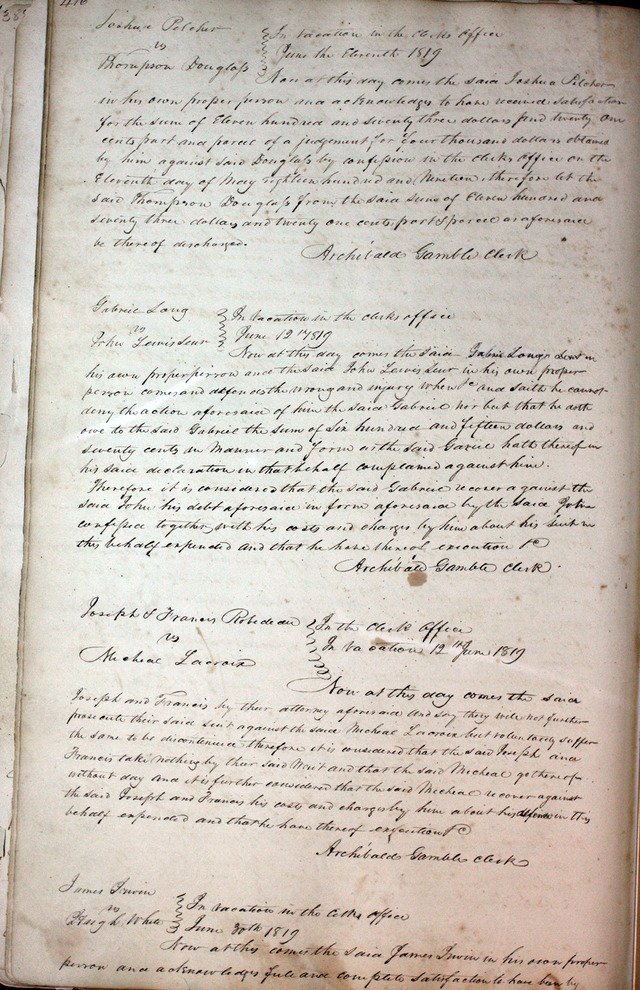 416
Joshua Pilcher
vs
Thompson Douglass
In Vacation in the clerks office
June the Eleventh 1819
Now at this day comes the said Joshua Pilcher
in his own proper person and acknowledges to have received satisfaction
for the sum of Eleven hundred and seventy three dollars and twenty one
cents part and parcel of a judgement for Four thousand dollars obtained
by him against said Douglass by confession in the clerks office on the
Eleventh day of May eighteen hundred and Nineteen, therefore let the
said Thompson Douglass from the said sum of Eleven hundred and
seventy three dollars and twenty one cents part & parcel as aforesaid
be thereof discharged.
Archibald Gamble Clerk
Gabriel Long
vs
John Lewis Senr
In Vacation in the clerks office
June 12th 1819
Now at this day comes the said Gabriel Long in
his own proper person and the said John Lewis Senr in his own proper
person comes and defends the wrong and injury when &c and saith he cannot
deny the action aforesaid of him the said Gabriel nor but that he doth
owe to the said Gabriel the sum of Six hundred and fifteen dollars and
seventy cents in Manner and form as the said Gabriel hath thereof in
his said declaration in that behalf complained against him.
Therefore it is considered that the said Gabriel recover against the
said John his debt aforesaid in form aforesaid by the said John
confessed together with his costs and charges by him about his suit in
this behalf expended and that he have thereof execution &c
Archibald Gamble Clerk.
Joseph & Francis Robedeau
vs
Micheal Lacroix
In the clerk office
In Vacation 12th June 1819
Now at this day comes the said
Joseph and Francis by their attorney aforesaid and say they will not further
prosecute their said suit against the said Micheal Lacroix but voluntarily suffer
the same to be discontinued therefore it is considered that the said Joseph and
Francis take nothing by their said Writ and that the said Micheal go thereof
without day and it is further considered that the said Micheal recover against
the said Joseph and Francis his costs and charges by him about his defense in this
behalf expended and that he have thereof execution &c
Archibald Gamble clerk
James Irwin
vs
Hugh White
In vacation in the clerks office
June 30th 1819
Now at this comes the said James Irwin in his own proper
person and acknowledges full and complete satisfaction to have been by